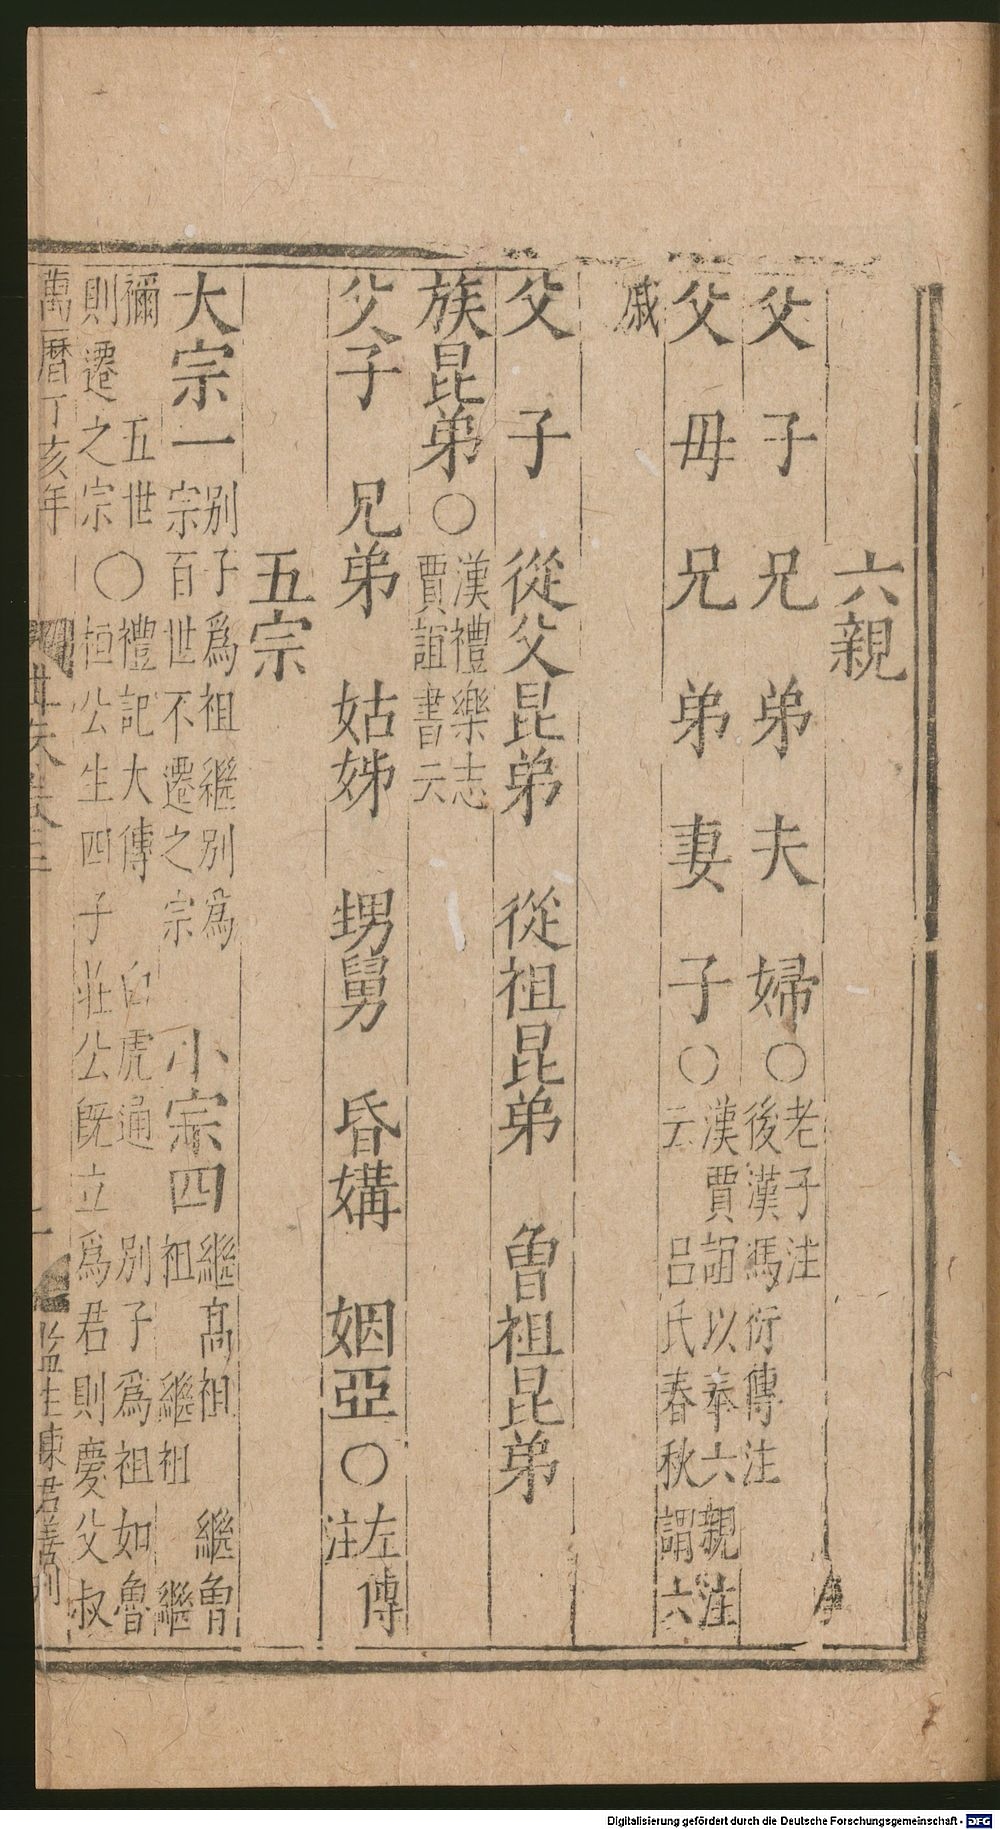 六親
父子兄弟夫婦○老子注
後漢馮衍傳注
父母兄弟妻子○漢賈誼以奉六親注
云吕氏春秋謂六
戚
父子 從父昆弟 從祖昆弟 曾祖昆弟
族昆弟○漢禮樂志
賈誼書云
父子 兄弟 姑姊 甥舅 昏媾 姻亞○左傳
注
五宗
大宗一别子爲祖繼别爲
宗百世不遷之宗
小宗四繼髙祖 繼曾
祖 繼祖 繼
禰 五世
則遷之宗
○禮記大傳 白虎通 别子爲祖如魯
桓公生四子莊公既立爲君則慶父叔
萬曆丁亥年
監生陳君善刊
Digitalisierung gefördert durch die Deutsche Forschungsgemeinschaft - DFG